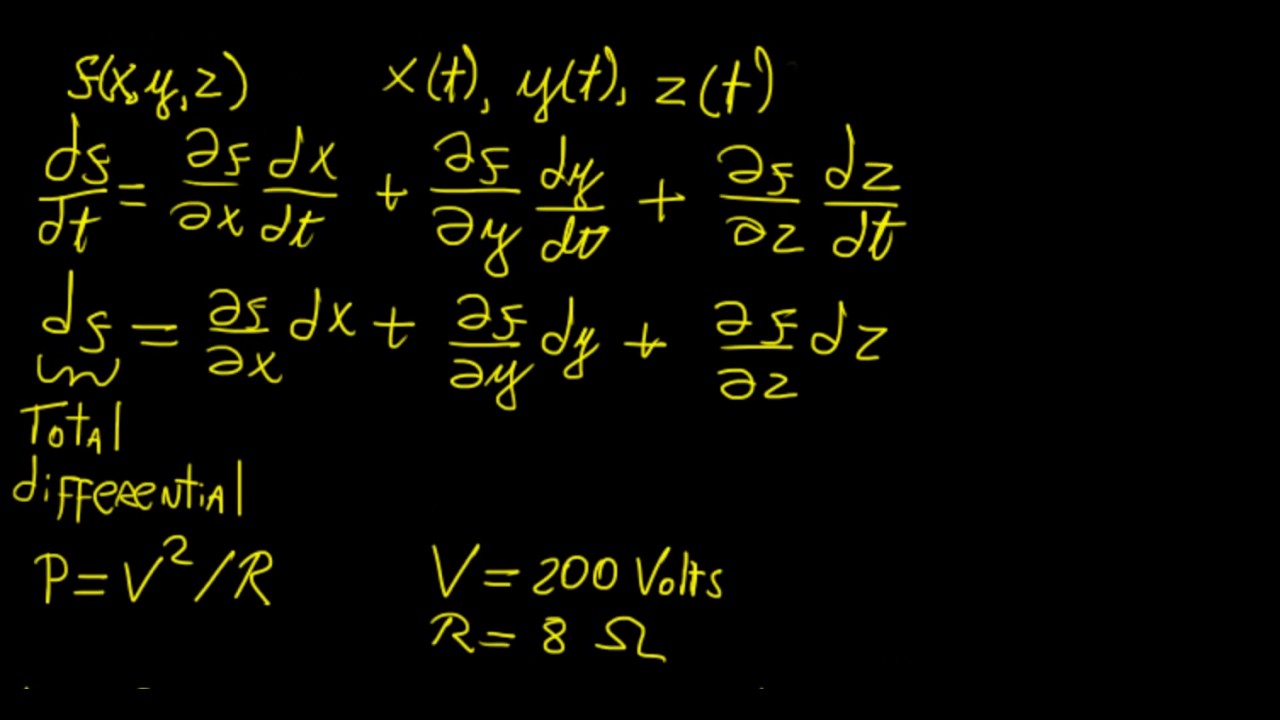 f(x,y,z) x(t), y(t), z(t)
df/dt = ∂f/∂x dx/dt + ∂f/∂y dy/dt + ∂f/∂z dz/dt
df = ∂f/∂x dx + ∂f/∂y dy + ∂f/∂z dz
Total
differential
P=V²/R V = 200 Volts
R = 8 Ω